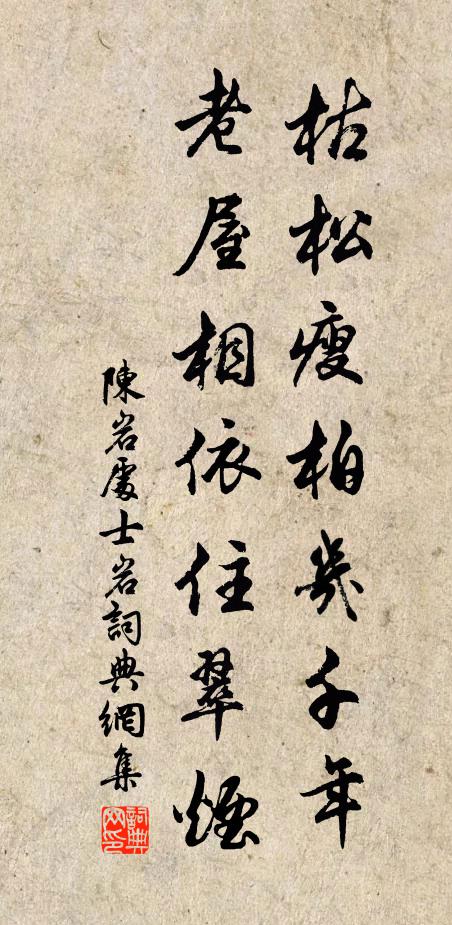 枯松瘦柏幾千年
老屋相依住翠煙
陳岩處士岩詞典網集
詞典网印